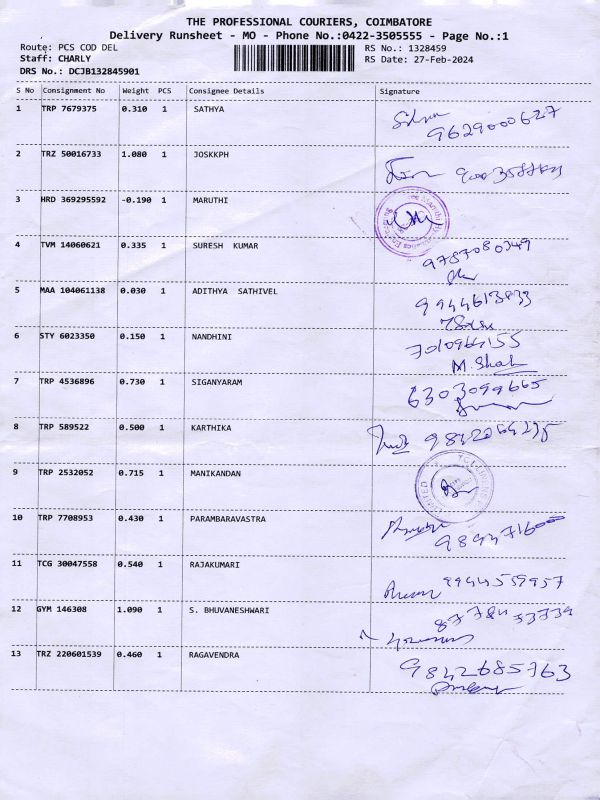 THE PROFESSIONAL COURIERS, COIMBATORE
Delivery Runsheet - MO - Phone No.:0422-3505555 - Page No.:1
Route: PCS COD DEL RS No.: 1328459
Staff: CHARLY RS Date: 27-Feb-2024
DRS No.: DCJB132845901
S No Consignment No Weight PCS Consignee Details Signature
1 TRP 7679375 0.310 1 SATHYA
9629000627
2 TRZ 50016733 1.080 1 JOSKKPH
3 HRD 369295592 -0.190 1 MARUTHI
4 TVM 14060621 0.335 1 SURESH KUMAR
9787080349
5 MAA 104061138 0.030 1 ADITHYA SATHIVEL
9944613833
6 STY 6023350 0.150 1 NANDHINI
M. Shah
7 TRP 4536896 0.730 1 SIGANYARAM
6303099665
8 TRP 589522 0.500 1 KARTHIKA
9 TRP 2532052 0.715 1 MANIKANDAN
10 TRP 7708953 0.430 1 PARAMBARAVASTRA
11 TCG 30047558 0.540 1 RAJAKUMARI
9944559957
12 GYM 146308 1.090 1 S. BHUVANESHWARI
13 TRZ 220601539 0.460 1 RAGAVENDRA
9842685763